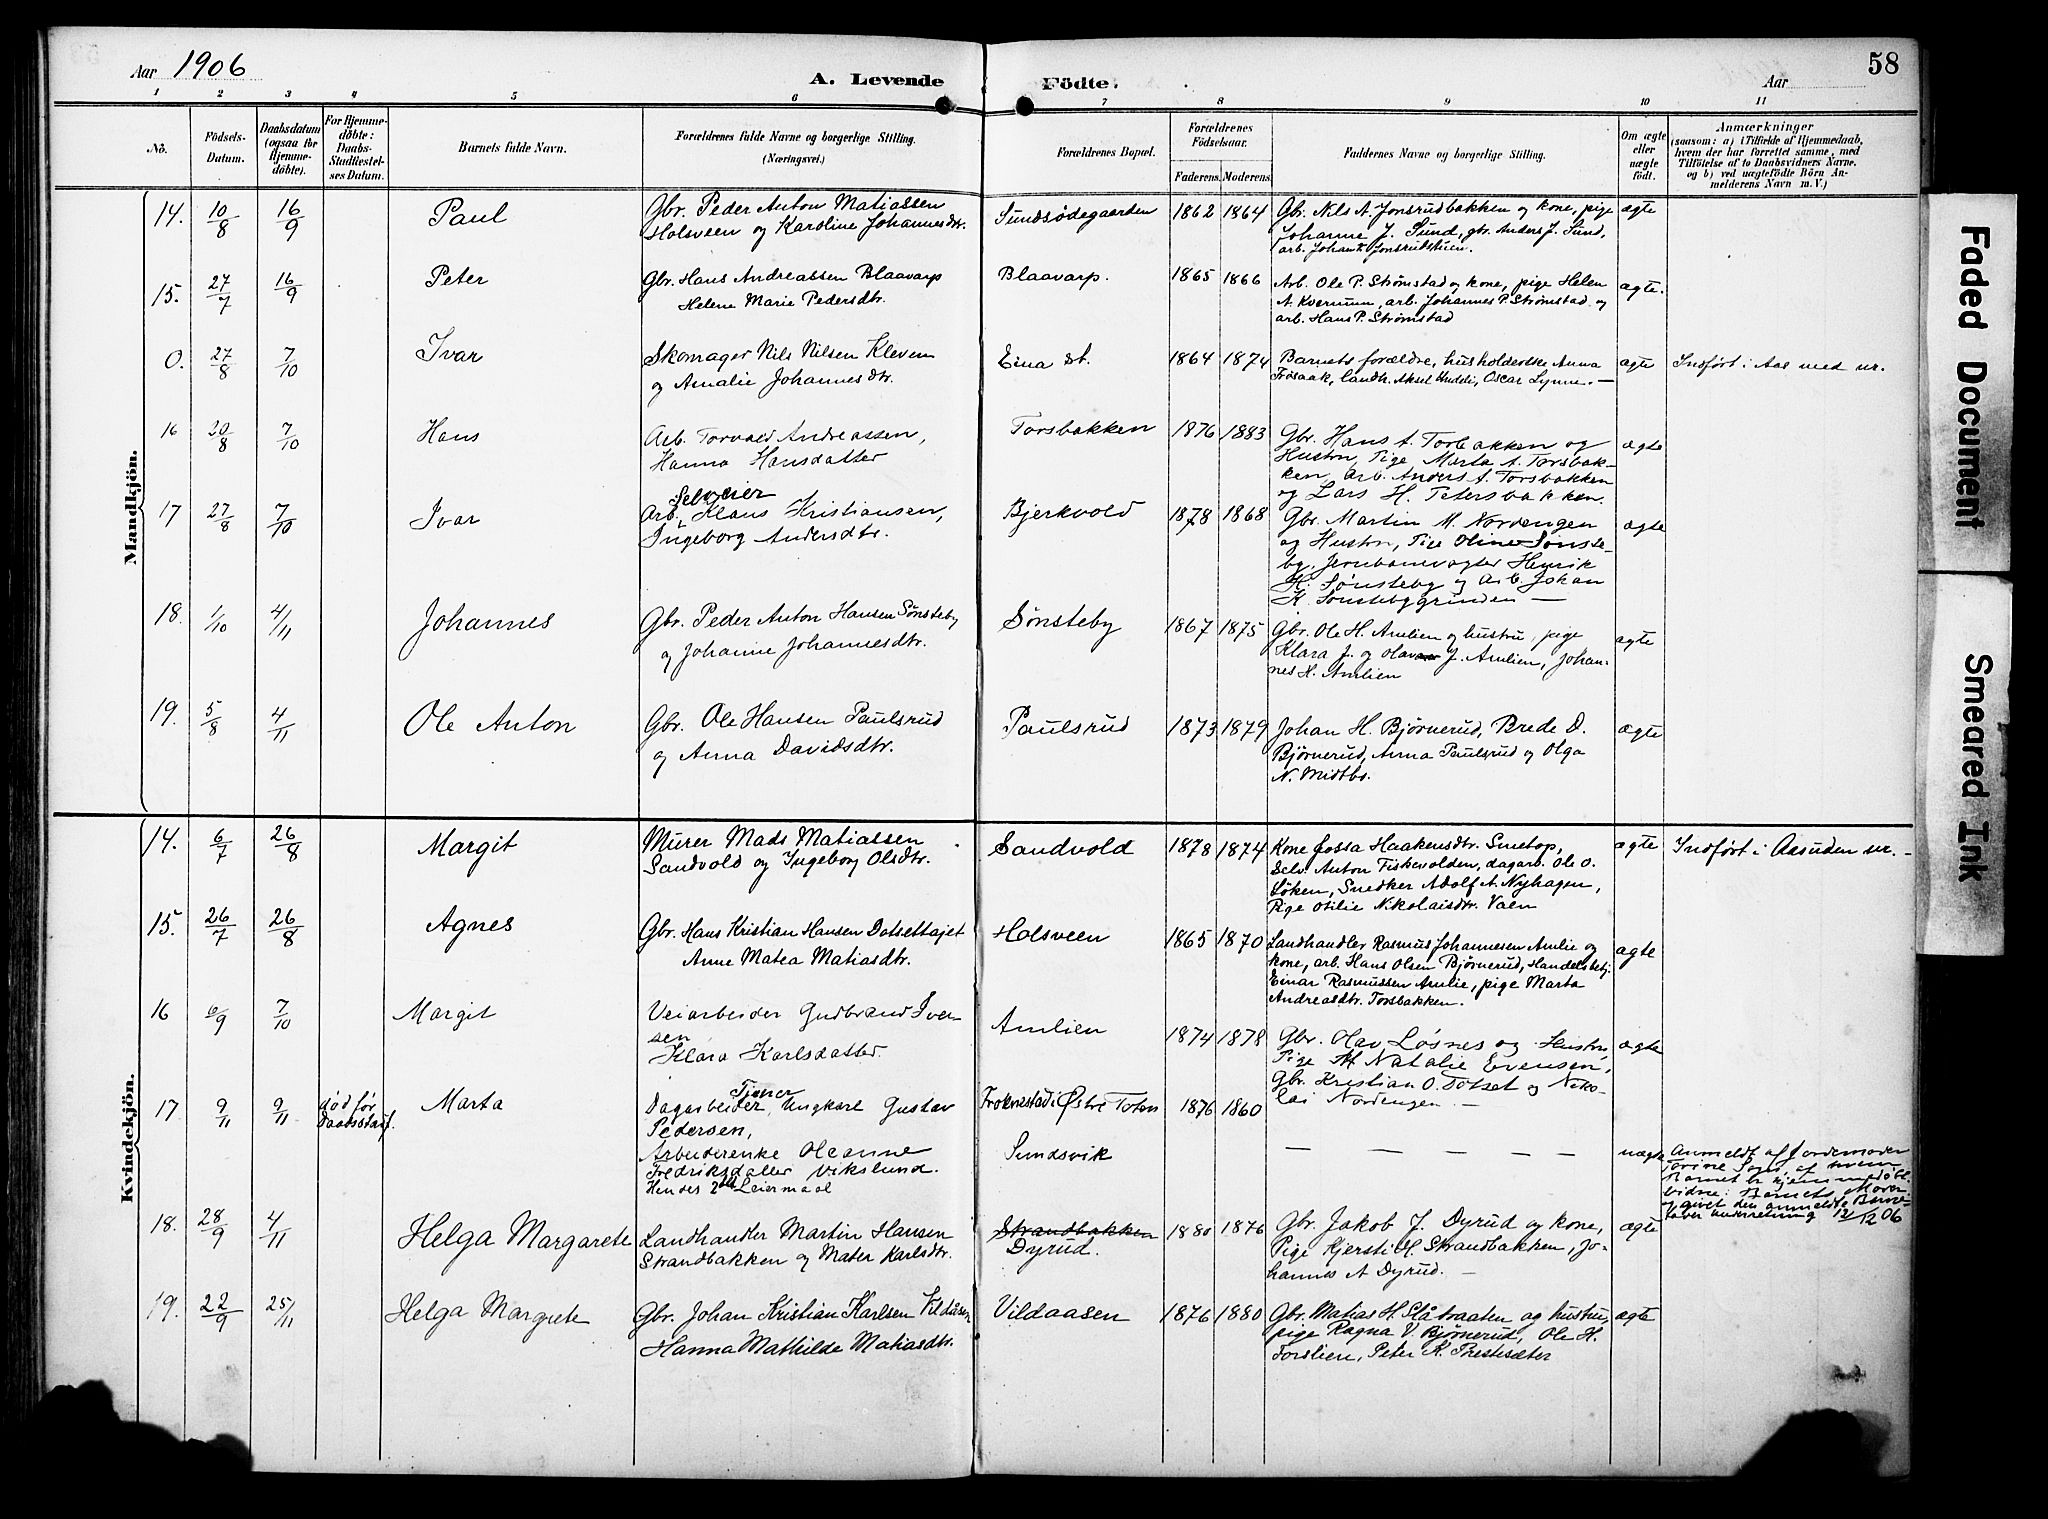 Aar 1906
A. Levende Födte.
Aar
58
1 2 3 4 5 6 7 8 9 10 11
No.
Födsels-Datum.
Daabsdatum (ogsaa for Hjemme-döbte).
For Hjemme-döbte: Daabs-Stadfæstel-ses Datum.
Barnets fulde Navn.
Forældrenes fulde Navne og borgerlige Stilling. (Næringsvei.)
Forældrenes Bopæl.
Forældrenes Födselsaar.
Faderens. Moderens.
Faddernes Navne og borgerlige Stilling.
Om ægte eller uægte födt.
Anmærkninger
(saasom: a) i Tilfælde af Hjemmedaab,
hvem der har forrettet samme, med
Tilföielse af to Daabsvidners Navne.
og b) ved uægtefödte Börn An-
melderens Navn m. V.)
Mandkjön.
14. 10/8 16/9 Paul
Gbr. Peder Anton Matiassen
Holsveen og Karoline Johannesdtr.
Sundsødegaarden 1862 1864
Gbr. Nils A. Jonsrudbakken og kone, pige
Johanne J. Sund, gbr. Anders J. Sund,
arb. Johan Jonsrudstuen.
ægte
15. 27/7 16/9 Peter
Gbr. Hans Andreassen Blaavarp
Helene Marie Pedersdtr.
Blaavarp. 1865 1866
Arb. Ole P. Strømstad og kone, pige Helen
A. Kvernum, arb. Johannes P. Strømstad og
arb. Hans P. Strømstad
ægte.
0. 27/8 7/10 Ivar
Skomager Nils Nilsen Kleven
og Amalie Johannesdtr.
Eina st. 1864 1874
Barnets forældre, husholderske Anna
Frøsaak, landh. Aksel Hudeli, Oscar Lynne. —
ægte
Indført i Aas med nr.
16 20/8 7/10 Hans
Arb. Torvald Andreassen,
Hanna Hansdatter
Torsbakken 1876 1883
Gbr. Hans A. Torbakken og
Hustru, Pige Marta A. Torsbak-
ken, Arb. Anders A. Torsbakken
og Lars H. Petersbakken.
ægte
17 27/8 7/10 Ivar
Selveier
Arb. Klaus Kristiansen,
Ingeborg Andersdtr.
Bjerkvold 1878 1868
Gbr. Martin M. Nordengen
og Hustru, Pige Oline Sønste-
by, Jernbanevagter Henrik
H. Sønsteby og Arb. Johan
K. Sønstebygrinden —
ægte
18. 1/10 4/11 Johannes
Gbr. Peder Anton Hansen Sønsteby
og Johanne Johannesdtr.
Sønsteby 1867 1875
Gbr. Ole H. Amlien og hustru, pige
Klara J. og Olav J. Amlien, Johan-
nes H. Amlien
ægte
19. 5/8 4/11 Ole Anton
Gbr. Ole Hansen Paulsrud
og Anna Davidsdtr.
Paulsrud 1873 1879
Johan H. Bjørnerud, Brede D.
Bjørnerud, Anna Paulsrud og Olga
N. Midtbø.
ægte
Kvindekjön.
14. 6/7 26/8 Margit
Murer Mads Matiassen
Sandvold og Ingeborg Olsdtr.
Sandvold 1878 1874
Kone Jossa Haakensdtr. Smetop,
Selv. Anton Fiskevolden, dagarb. Ole O.
Løken, Snedker Adolf A. Nyhagen,
Pige Otilie Nikolaisdtr. Vaen
ægte
Indført i Aasuden nr. -
15. 26/7 26/8 Agnes
Gbr. Hans Kristian Hansen Dotsettajet
Anne Matea Matiasdtr.
Holsveen 1865 1870
Landhandler Rasmus Johannesen Amlie og
kone, arb. Hans Olsen Bjørnerud, Handelsbetj.
Einar Rasmussen Amlie, pige Marta
Andreasdtr. Torsbakken.
ægte
16 6/9 7/10 Margit
Veiarbeider Gudbrand Iver-
sen
Klara Karlsdatter.
Amlien 1874 1878
Gbr. Olav Løsnes og Hustru,
Pige Natalie Evensen,
Gbr. Kristian O. Totset og Niko-
lai Nordengen. —
ægte
17. 9/11 9/11 død før Daabsstadf. Marta
Tjener
Dagarbeider, Ungkarl Gustav
Pedersen,
Arbeiderenke Oleanne
Fredriksdatter Vikslund.
Hendes 2det Leiermaal
Froknestad i Østre Toten 1876 1860
Sundsvik
— — — — — —
uægte
Anmeldt af Jordemoder
Torine Sons, af hvem
Barnet er hjemmedöbt
Barnets Moder
givet den anmeldte
underretning 12/12 06
18. 28/9 4/11 Helga Margarete
Landhandler Martin Hansen
Strandbakken og Mater Karlsdtr.
Strandbakken
Dyrud. 1880 1876
Gbr. Jakob J. Dyrud og kone,
Pige Kjersti H. Strandbakken, Jo-
hannes A Dyrud. —
ægte
19. 22/9 25/11 Helga Margrete
Gbr. Johan Kristian Karlsen Vildåsen
Hanna Mathilde Matiasdtr.
Vildaasen 1876 1880
Gbr. Matias H. Slåtbraaten og hustru,
pige Ragna V. Bjørnerud, Ole H.
Forslien, Peter K. Prestesæter
ægte
Faded Document
Smeared Ink